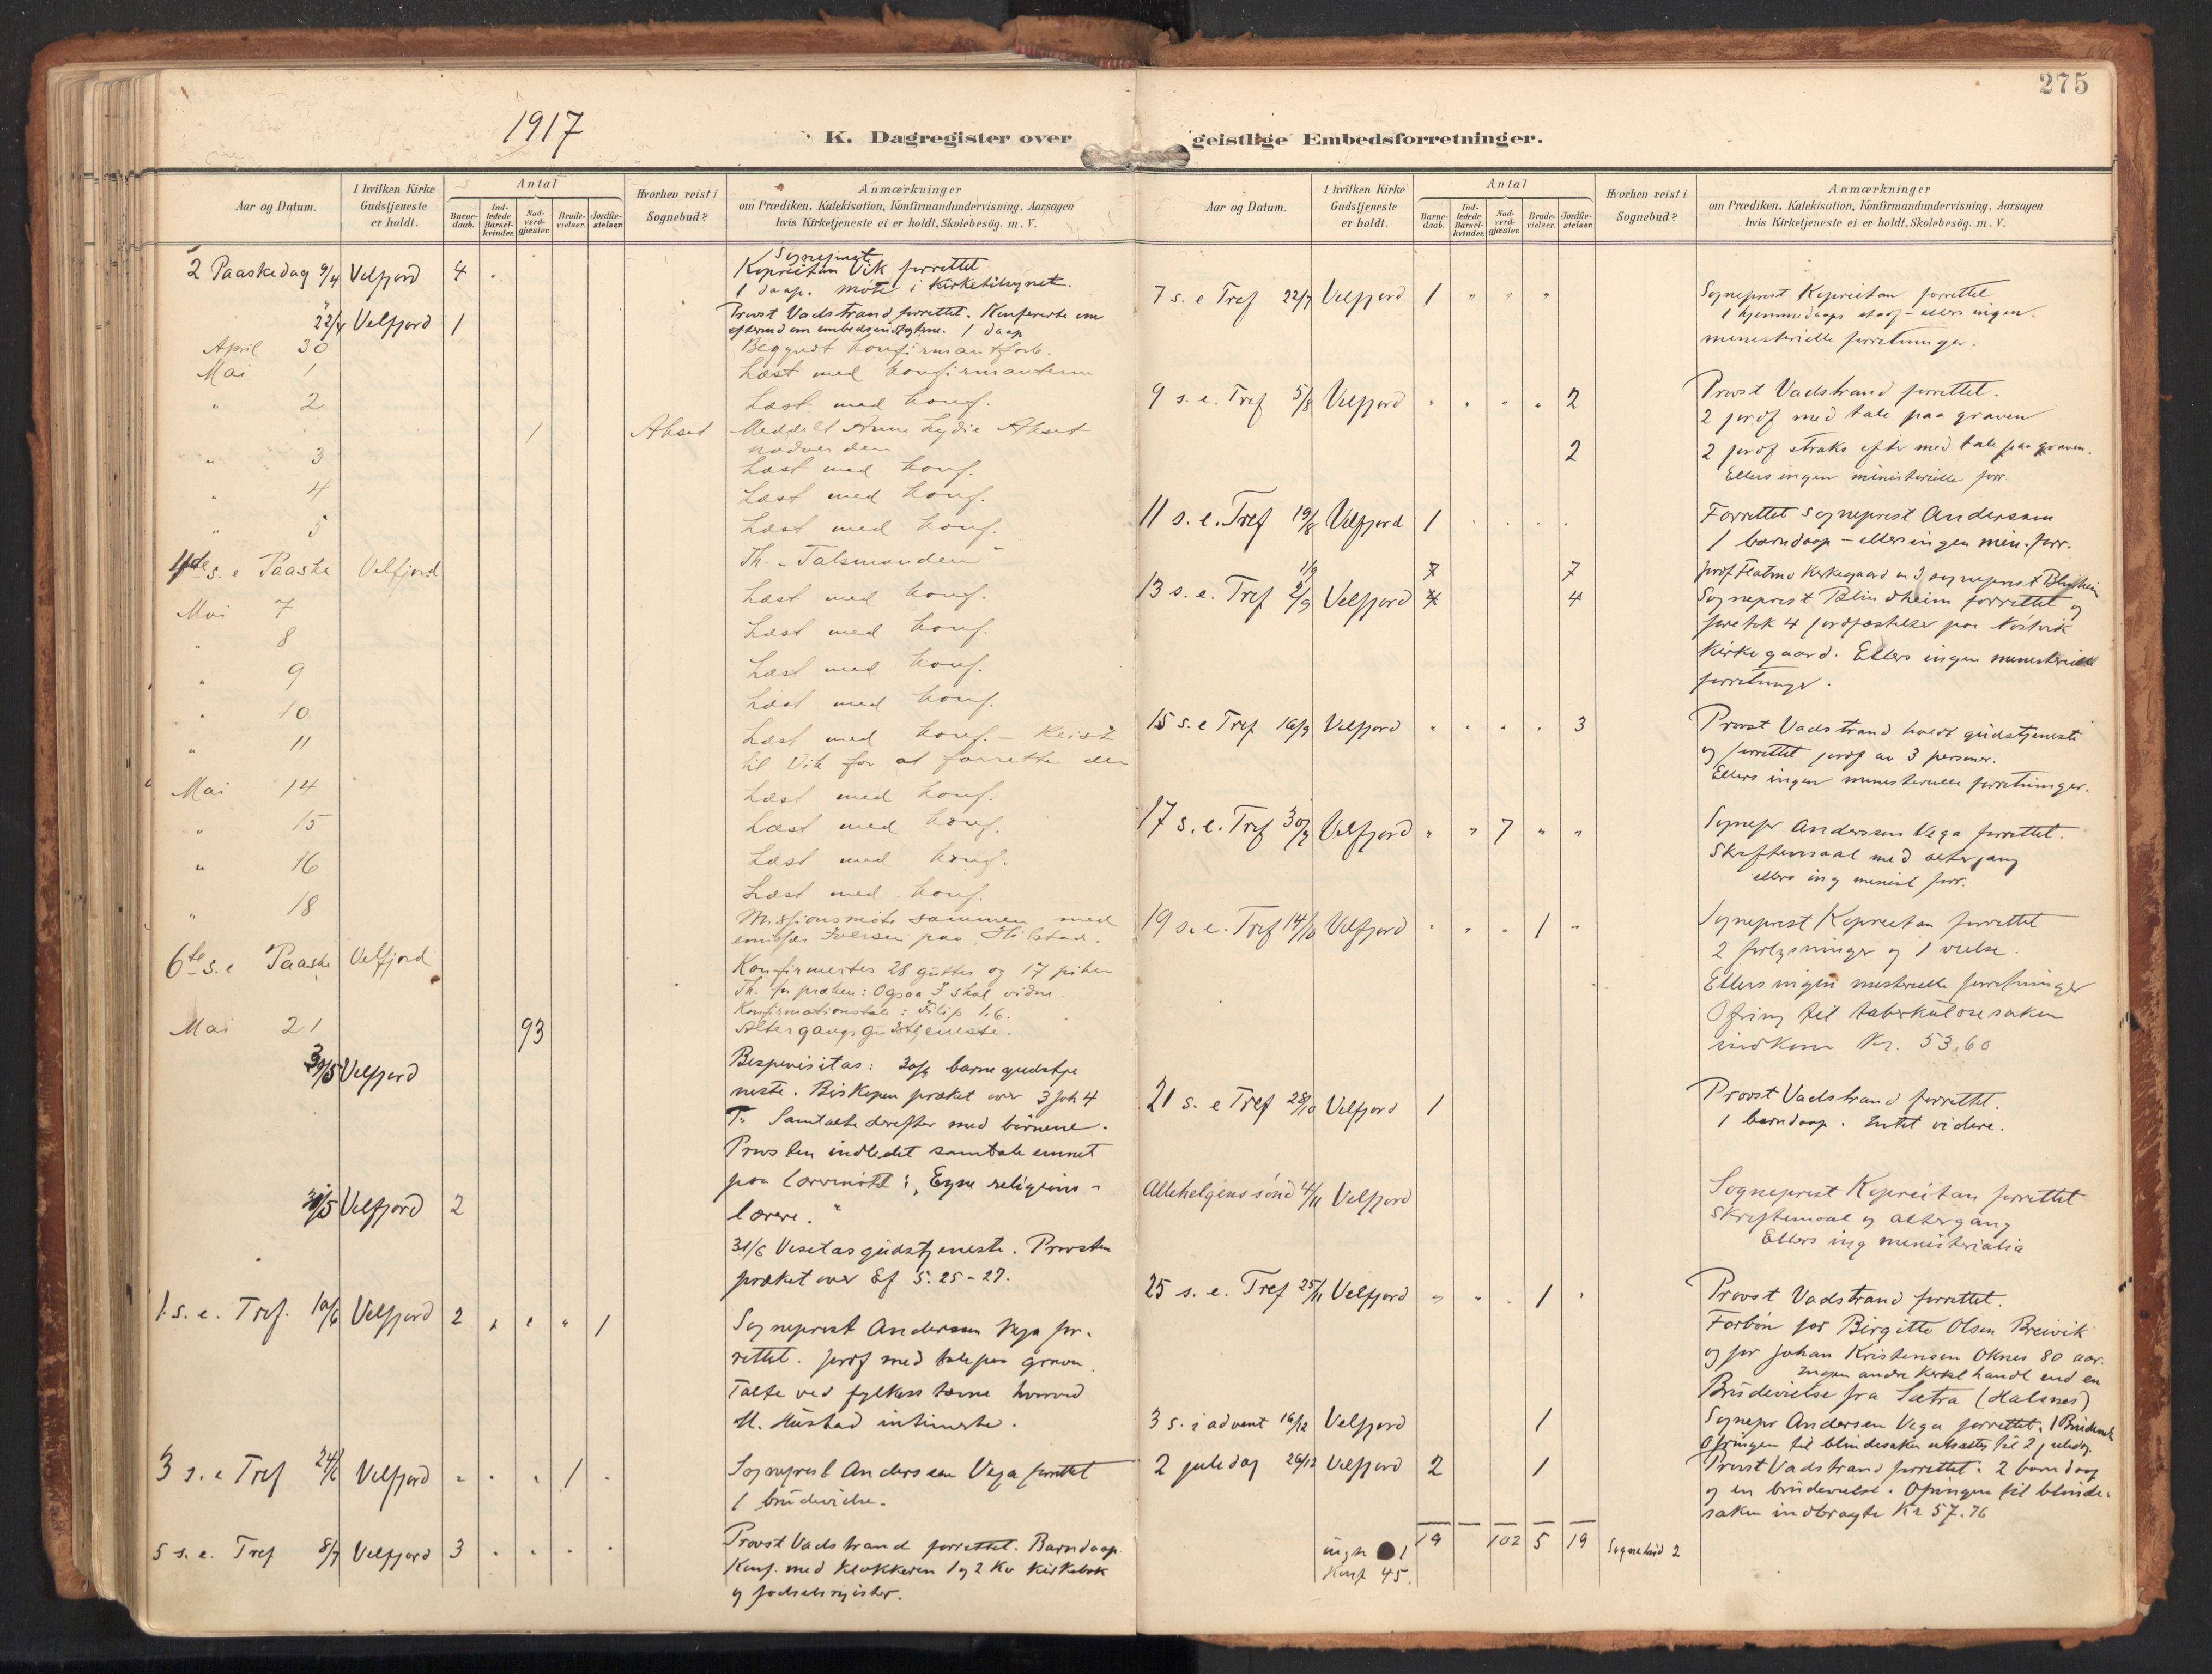 275
1917
K. Dagregister over geistlige Embedsforretninger.
Aar og Datum.
I hvilken Kirke Gudstjeneste er holdt.
Antal
Barne-daab.
Ind-ledede Barsel-kvinder.
Nad-verd-gjæster.
Brude-vielser.
Jordfæ-stelser.
Hvorhen reist i Sognebud?
Anmærkninger
om Prædiken, Katekisation, Konfirmandundervisning, Aarsagen
hvis Kirketjeneste ei er holdt, Skolebesög. m. V.
2 Paaskedag 9/4 Velfjord 4 Sogneprest
Kopreitan Vik forrettet
1 daap. møte i Kirketilsynet.
22/4 Velfjord 1 Provst Vadstrand forrettet. Konfererte om
1 daap
April 30 Begyndt konfirmantforb.
Mai 1 Læst med konfirmanterne
" 2 Læst med konf.
1 Akset Meddelt Anne Lydie Akset
nadverden
" 3 Læst med konf.
" 4 Læst med konf.
" 5 Læst med konf.
4de s. e Paaske Velfjord Th. "Talsmanden"
Mai 7 Læst med konf.
" 8 Læst med konf.
" 9 Læst med konf.
" 10 Læst med konf.
" 11 Læst med konf. – Reist
til Vik for at forrette der
Mai 14 Læst med konf.
" 15 Læst med konf.
" 16 Læst med konf.
" 18 Læst med konf.
Missionsmøte sammen med
emissær Iversen paa
6te s. e Paaske Velfjord Konfirmertes 28 gutter og 17 piker
Th. for præken: Ogsaa I skal vidne.
Konfirmationstale: Filip 1.6.
Mai 21 93 Altergangsgudstjeneste.
30/5 Velfjord Bispevisitas: barnegudstje
neste. Biskopen præket over 3 Joh 4
Samtalte derefter med börnene.
Provsten indledet samtaleemnet
paa lærermöte: "Egne religions-
31/5 Velfjord 2 lærere."
31/6 Visitasgudstjeneste. Provsten
præket over Ef 5. 25-27.
1 s. e. Tref. 10/6 Velfjord 2 " " " 1 Sogneprest Anderssen Vega for-
rettet. jordf med tale paa graven.
Talte ved fylkesstævne hvorved
M. Hustad intimerte.
3 s. e Tref 24/6 Velfjord " " " 1 " Sogneprest Anderssen Vega forrettet
1 brudevielse.
5 s. e. Tref 8/7 Velfjord 3 " " " " Provst Vadstrand forrettet. Barndaap.
Konf. med Klokkeren 1 og 2 Kv Kirkebok
og fødselsregister.
Aar og Datum.
I hvilken Kirke Gudstjeneste er holdt.
Antal
Barne-daab.
Ind-ledede Barsel-kvinder.
Nad-verd-gjæster.
Brude-vielser.
Jordfæ-stelser.
Hvorhen reist i Sognebud?
Anmærkninger
om Prædiken, Katekisation, Konfirmandundervisning, Aarsagen
hvis Kirketjeneste ei er holdt, Skolebesög. m. V.
7 s. e Tref 22/7 Velfjord 1 " " " Sogneprest Kopreitan forrettet
1 hjemmedaap – ellers ingen
menisterielle forretninger.
9 s. e. Tref 5/8 Velfjord " " " " 2 Provst Vadstrand forrettet.
2 jordf med tale paa graven
2 2 jordf straks efter med tale paa graven.
Ellers ingen ministerielle forr.
11 s. e. Tref 19/8 Velfjord 1 Forrettet sogneprest Anderssen
1 barndaap – ellers ingen men. forr.
1/9 7 7 jordf Kirkegaard sogneprest Blindheim
13 s. e. Tref 2/9 Velfjord 4 4 Sogneprest Blindheim forrettet og
foretok 4 jordfæstelser paa Nöstvik
Kirkegaard. Ellers ingen menesterielle
forretninger.
15 s. e Tref 16/9 Velfjord " " " " 3 Provst Vadstrand holdt gudstjeneste
og forrettet jordf av 3 personer.
Ellers ingen menesterielle forretninger.
17 s. e. Tref 30/9 Velfjord " " 7 " " Sognepr Anderssen Vega forrettet.
Skriftemaal med altergang
ellers ing menist forr.
19 s. e. Tref 14/10 Velfjord " " " 1 " Sogneprest Kopreitan forrettet
2 forlysninger og 1 vielse.
Ellers ingen mesterielle forretninger
Ofring til tuberkulosesaken
indkom Kr. 53.60
21 s. e Tref 28/10 Velfjord 1 Provst Vadstrand forrettet.
1 barndaap. Intet videre.
Allehelgens sönd 4/11 Velfjord Sogneprest Kopreitan forrettet
Skriftemaal og altergang
Ellers ing menisterialia
25 s. e. Tref 25/11 Velfjord " " " 1 " Provst Vadstrand forrettet.
Forbön for Birgitte Olsen Breivik
og for Johan Kristensen Oknes 80 aar.
Ingen andre Kirkel handl end en
Brudevielse fra Sætra (Halsnes)
3 s. i advent 16/12 Velfjord 1 Sognepr Andersen Vega forrettet. 1 Brudev
Ofringen til blindesaken utsattes til 2 juledag.
2 juledag 26/12 Velfjord 2 1 Provst Vadstrand forrettet. 2 barndaap
og en brudevielse. Ofringen til blinde-
saken indbragte Kr 57.76
19 102 5 19 Sognebud 2
1
Konf 45.